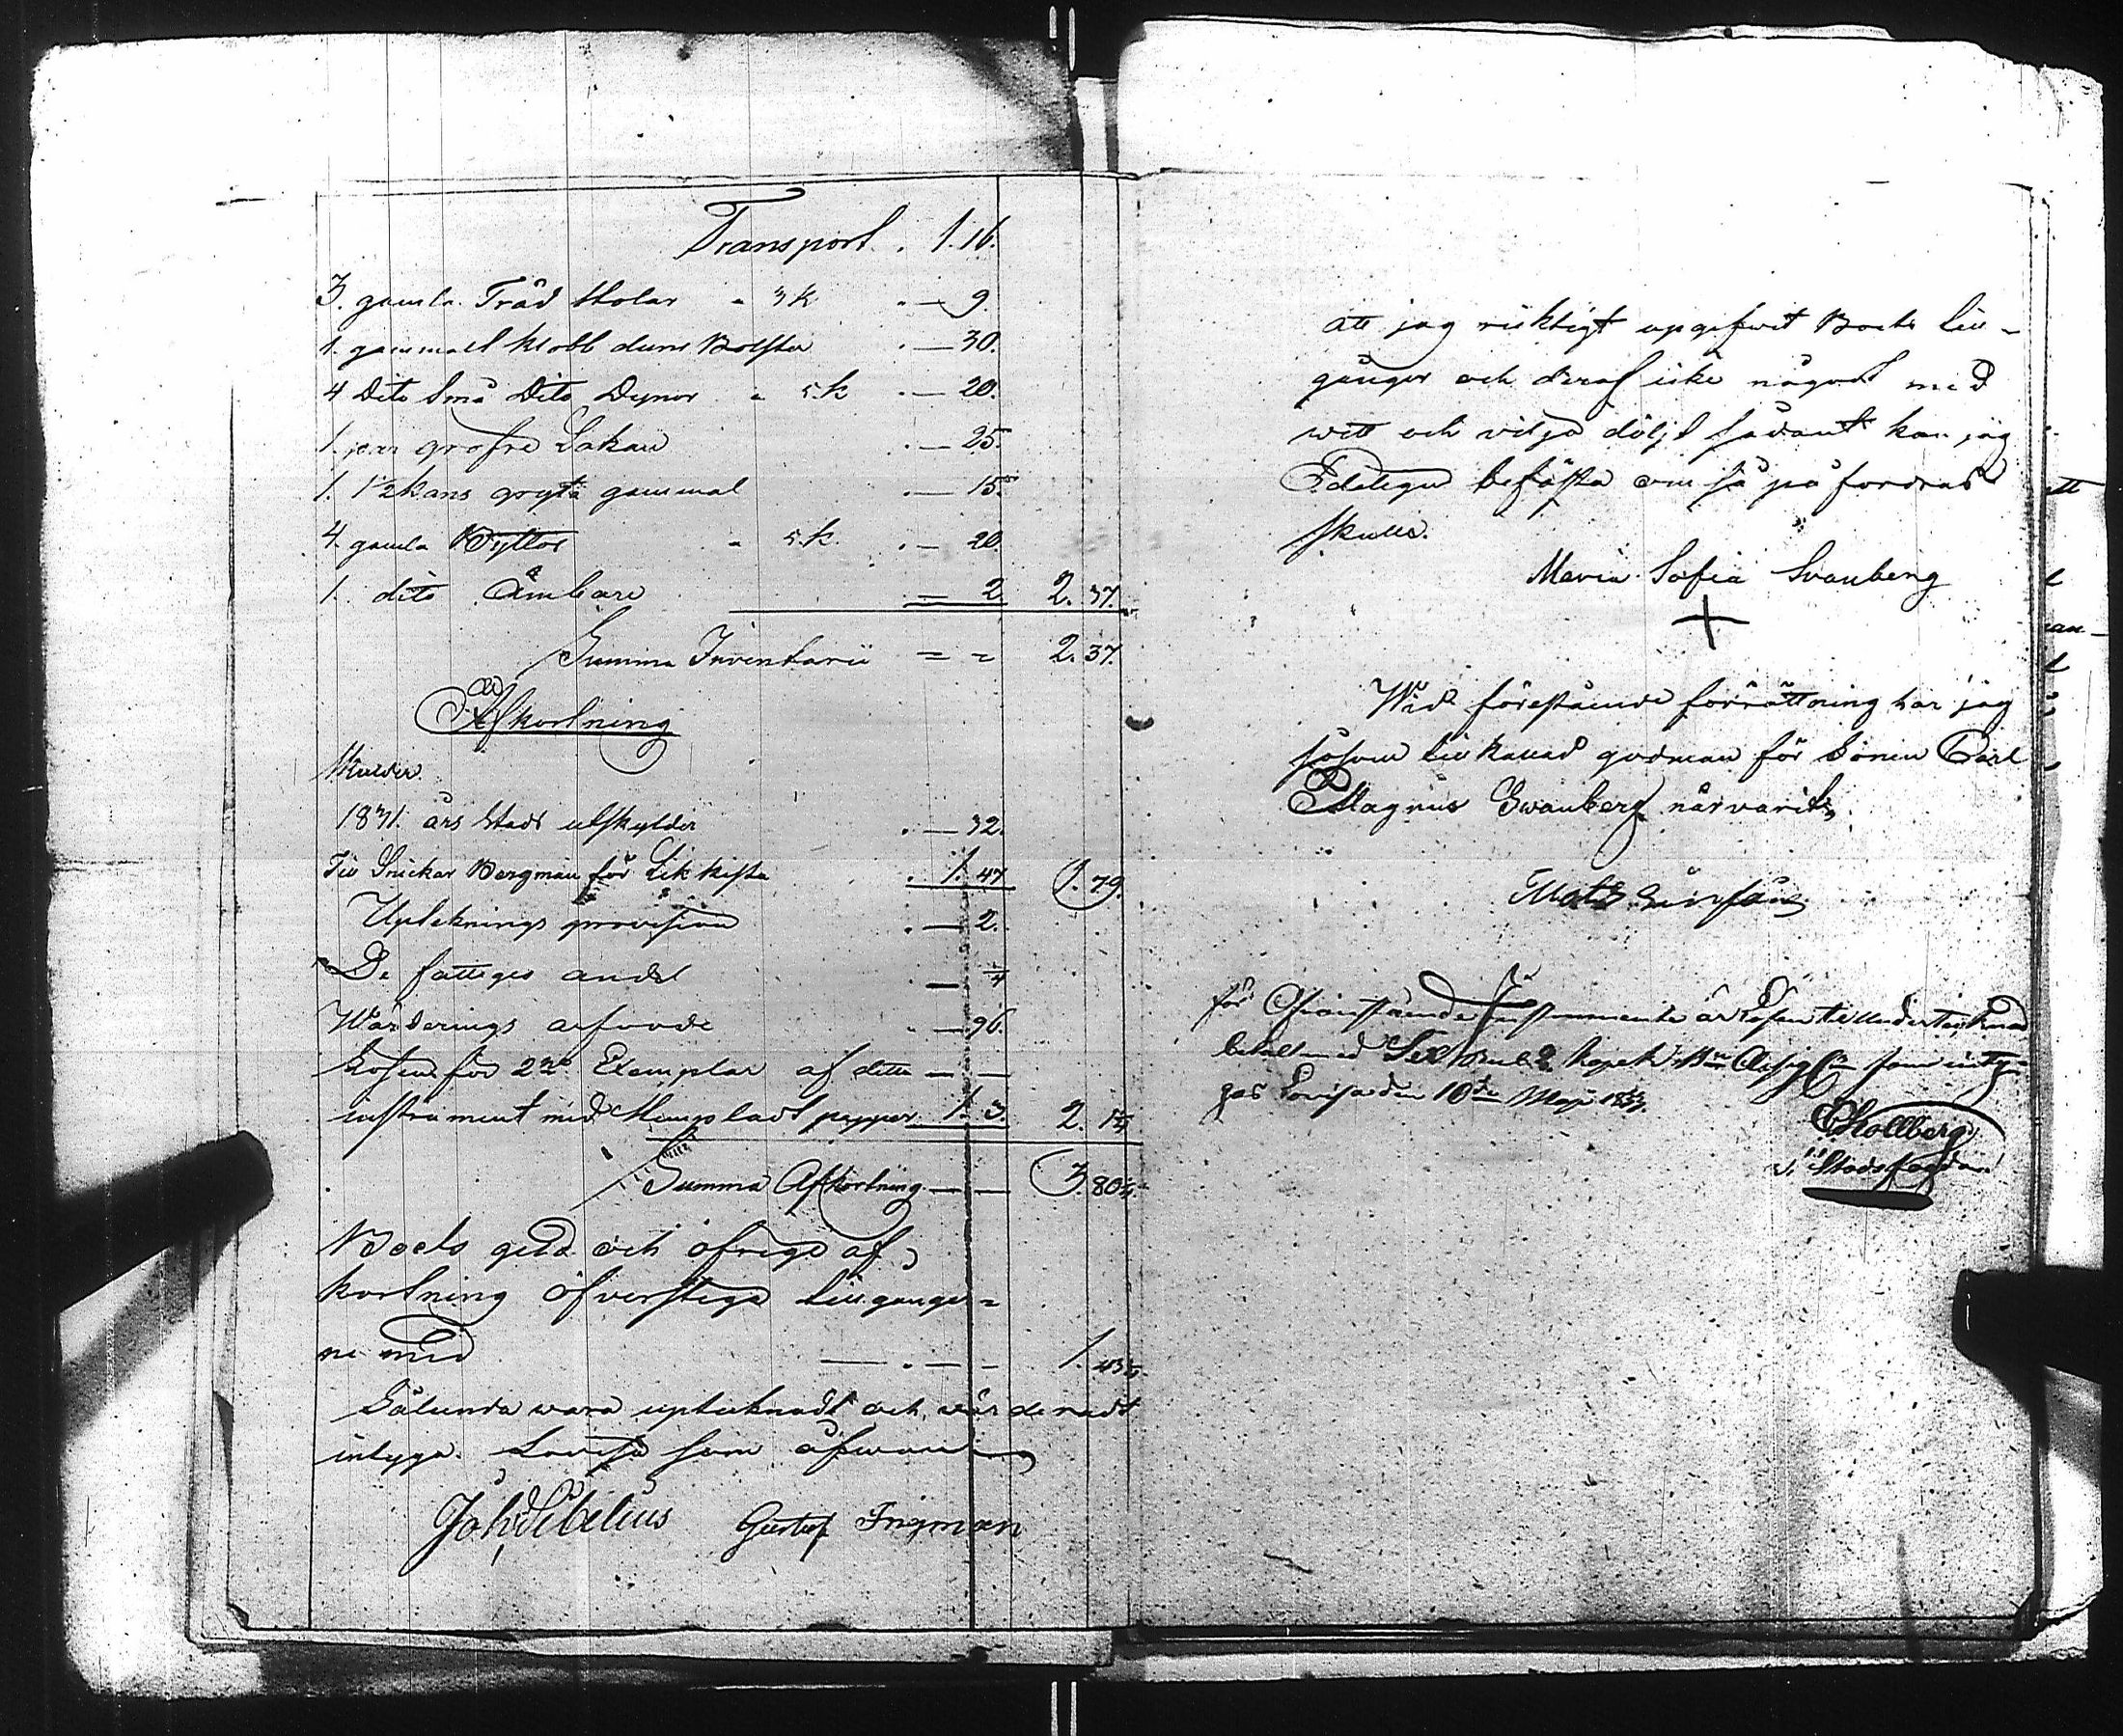 Transport . 1. 16.
3. gamla Träd stolar a 3 k . — 9.
1. gammalt klobb duns Bolster . — 30.
4 Dito Små Dito Dynor a 5. k . — 20.
1. par grofva Lakan . — 25.
1. 1/2 kans gryta gammal . — 15.
4. gamla Byttor a 5. k. . — 20.
1. dito Ämbare — 2 2. 37.
Summa Inventarii = = 2. 37.
Afkortning
Skulder
1831. års Stads utskylder . — 32.
Till Snickar Bergman för Likkista . 1. 47 1. 79.
Upteknings provision . — 2.
De fattiges andel —
Wärderings arfvode . — 96.
Lösen för 2ne Exemplar af detta — —
instrument med Stempladt papper 1. 3. 2.
Summa Afkortning — — 3. 80
Boets gäld och öfrige af-
kortning öfverstiga tillgånger=
ne med — . — - 1. 43
Sålunda vara uptecknadt och värderadt
intyga. Lovisa som åfwan
Joh Sibelius Gustaf Ingman
att jag ricktigt upgifvit Boets till-
gånger och deraf icke något med
wett och vilja döljt sådant kan jag
Edeligen befästa om så på fordras
skulle.
Maria Sofia Svanberg
+
Wid förestående förrättning har jag
såsom tilkallad godman för Sonen Carl
Magnus Swanberg närvarit.
Mats
för Ofvanstående Instrumente är Lösen till undertecknad
betalt med Sex Rub 2 kopek Bco Assigr som inty-
gas Lovisa den 10de Maji
CHollberg
Stadsfogde